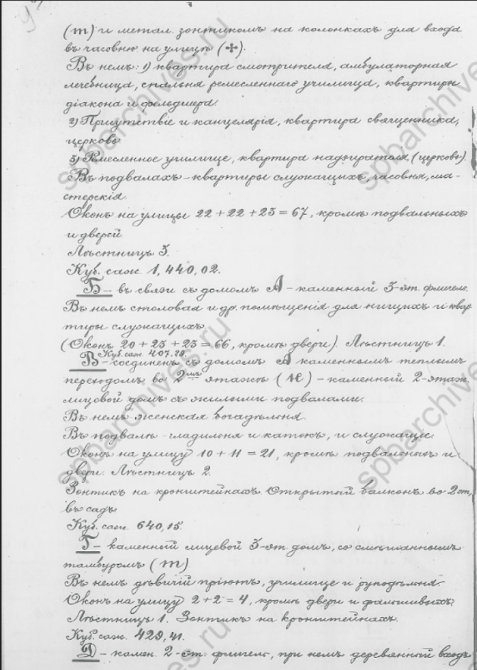 (т) и метал. зонтикомъ на колонкахъ для входа
въ часовню на улицу (✢).
Въ немъ: 1) квартира смотрителя, амбулаторная
лечебница, спальня ремесленнаго училища, квартиры
діакона и фельдшера
2) Присутствіе и канцелярія, квартира священника,
церковь
3) Ремесленное училище, квартира надзирателя (церковь)
Въ подвалахъ - квартиры служащихъ, часовня, ма-
стерскія
Оконъ на улицы 22 + 22 + 23 = 67, кромѣ подвальныхъ
и дверей
Лѣстницъ 3.
Куб. саж. 1,440,02.
Б - въ связи съ домомъ А - каменный 3-эт. флигель.
Въ немъ столовая и др. помѣщенія для нищихъ и квар
тиры служащихъ.
(Оконъ 20 + 23 + 23 = 66, кромѣ двери). Лѣстницъ 1.
Куб. саж. 407,28
В - соединенъ съ домомъ А каменнымъ теплымъ
переходомъ во 2мъ этажѣ (Н) - каменный 2-этаж
лицевой домъ съ жилыми подвалами.
Въ немъ женская богадѣльня.
Въ подвалѣ - гладильня и катокъ, и служащіе
Оконъ на улицу 10 + 11 = 21, кромѣ подвальныхъ и
двери. Лѣстницъ 2
Зонтикъ на кронштейнахъ. Открытый балконъ во 2 эт,
въ садъ
Куб. саж. 640,15
Г - каменный лицевой 3-эт домъ, со
тамбуромъ (т)
Въ немъ дѣвичій пріютъ, училище и рукодѣльня.
Оконъ на улицу 2 + 2 = 4, кромѣ двери и фальшивыхъ.
Лѣстницъ 1. Зонтикъ на кронштейнахъ.
Куб. саж. 429,41.
Д - камен. 2-эт. флигель, при немъ деревянный входъ
spbarchives.ru